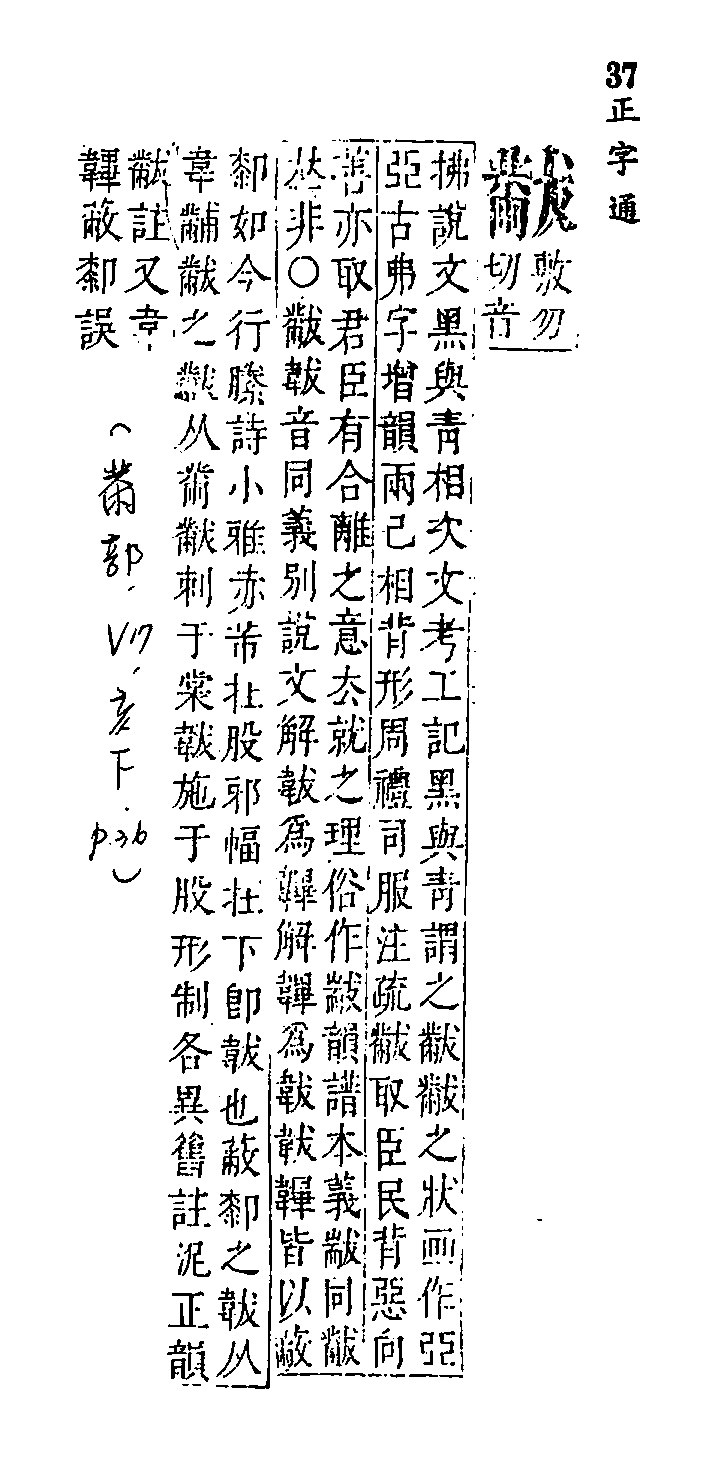 37正字通
黻
敷勿
切音
拂說文黑與靑相次文考工記黑與靑謂之黻黻之狀画作亞
亞古弗字增韻兩己相背形周禮司服注疏黻取臣民背惡向
善亦取君臣有合離之意去就之理俗作韻譜本義同黻
非○黻韍音同義別說文解韍爲韠解韠爲韍韍韠皆以蔽
厀如今行縢詩小雅赤芾在股邪幅在下卽韍也蔽厀之韍从
韋黼黻之黻从黹黻刺于裳韍施于股形制各異舊註泥正韻
黻註又韋
韠蔽厀誤
(黹部.V17,亥下.p.36)